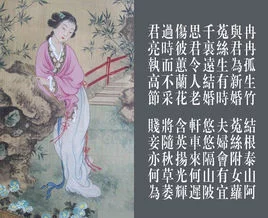 冉冉孤生竹
結根泰山阿
與君為新婚
菟絲附女蘿
菟絲生有時
夫婦會有宜
千裏遠結婚
悠悠隔山陂
思君令人老
軒車來何遲
傷彼蕙蘭花
含英揚光輝
過時而不采
將隨秋草萎
君亮執高節
賤妾亦何為